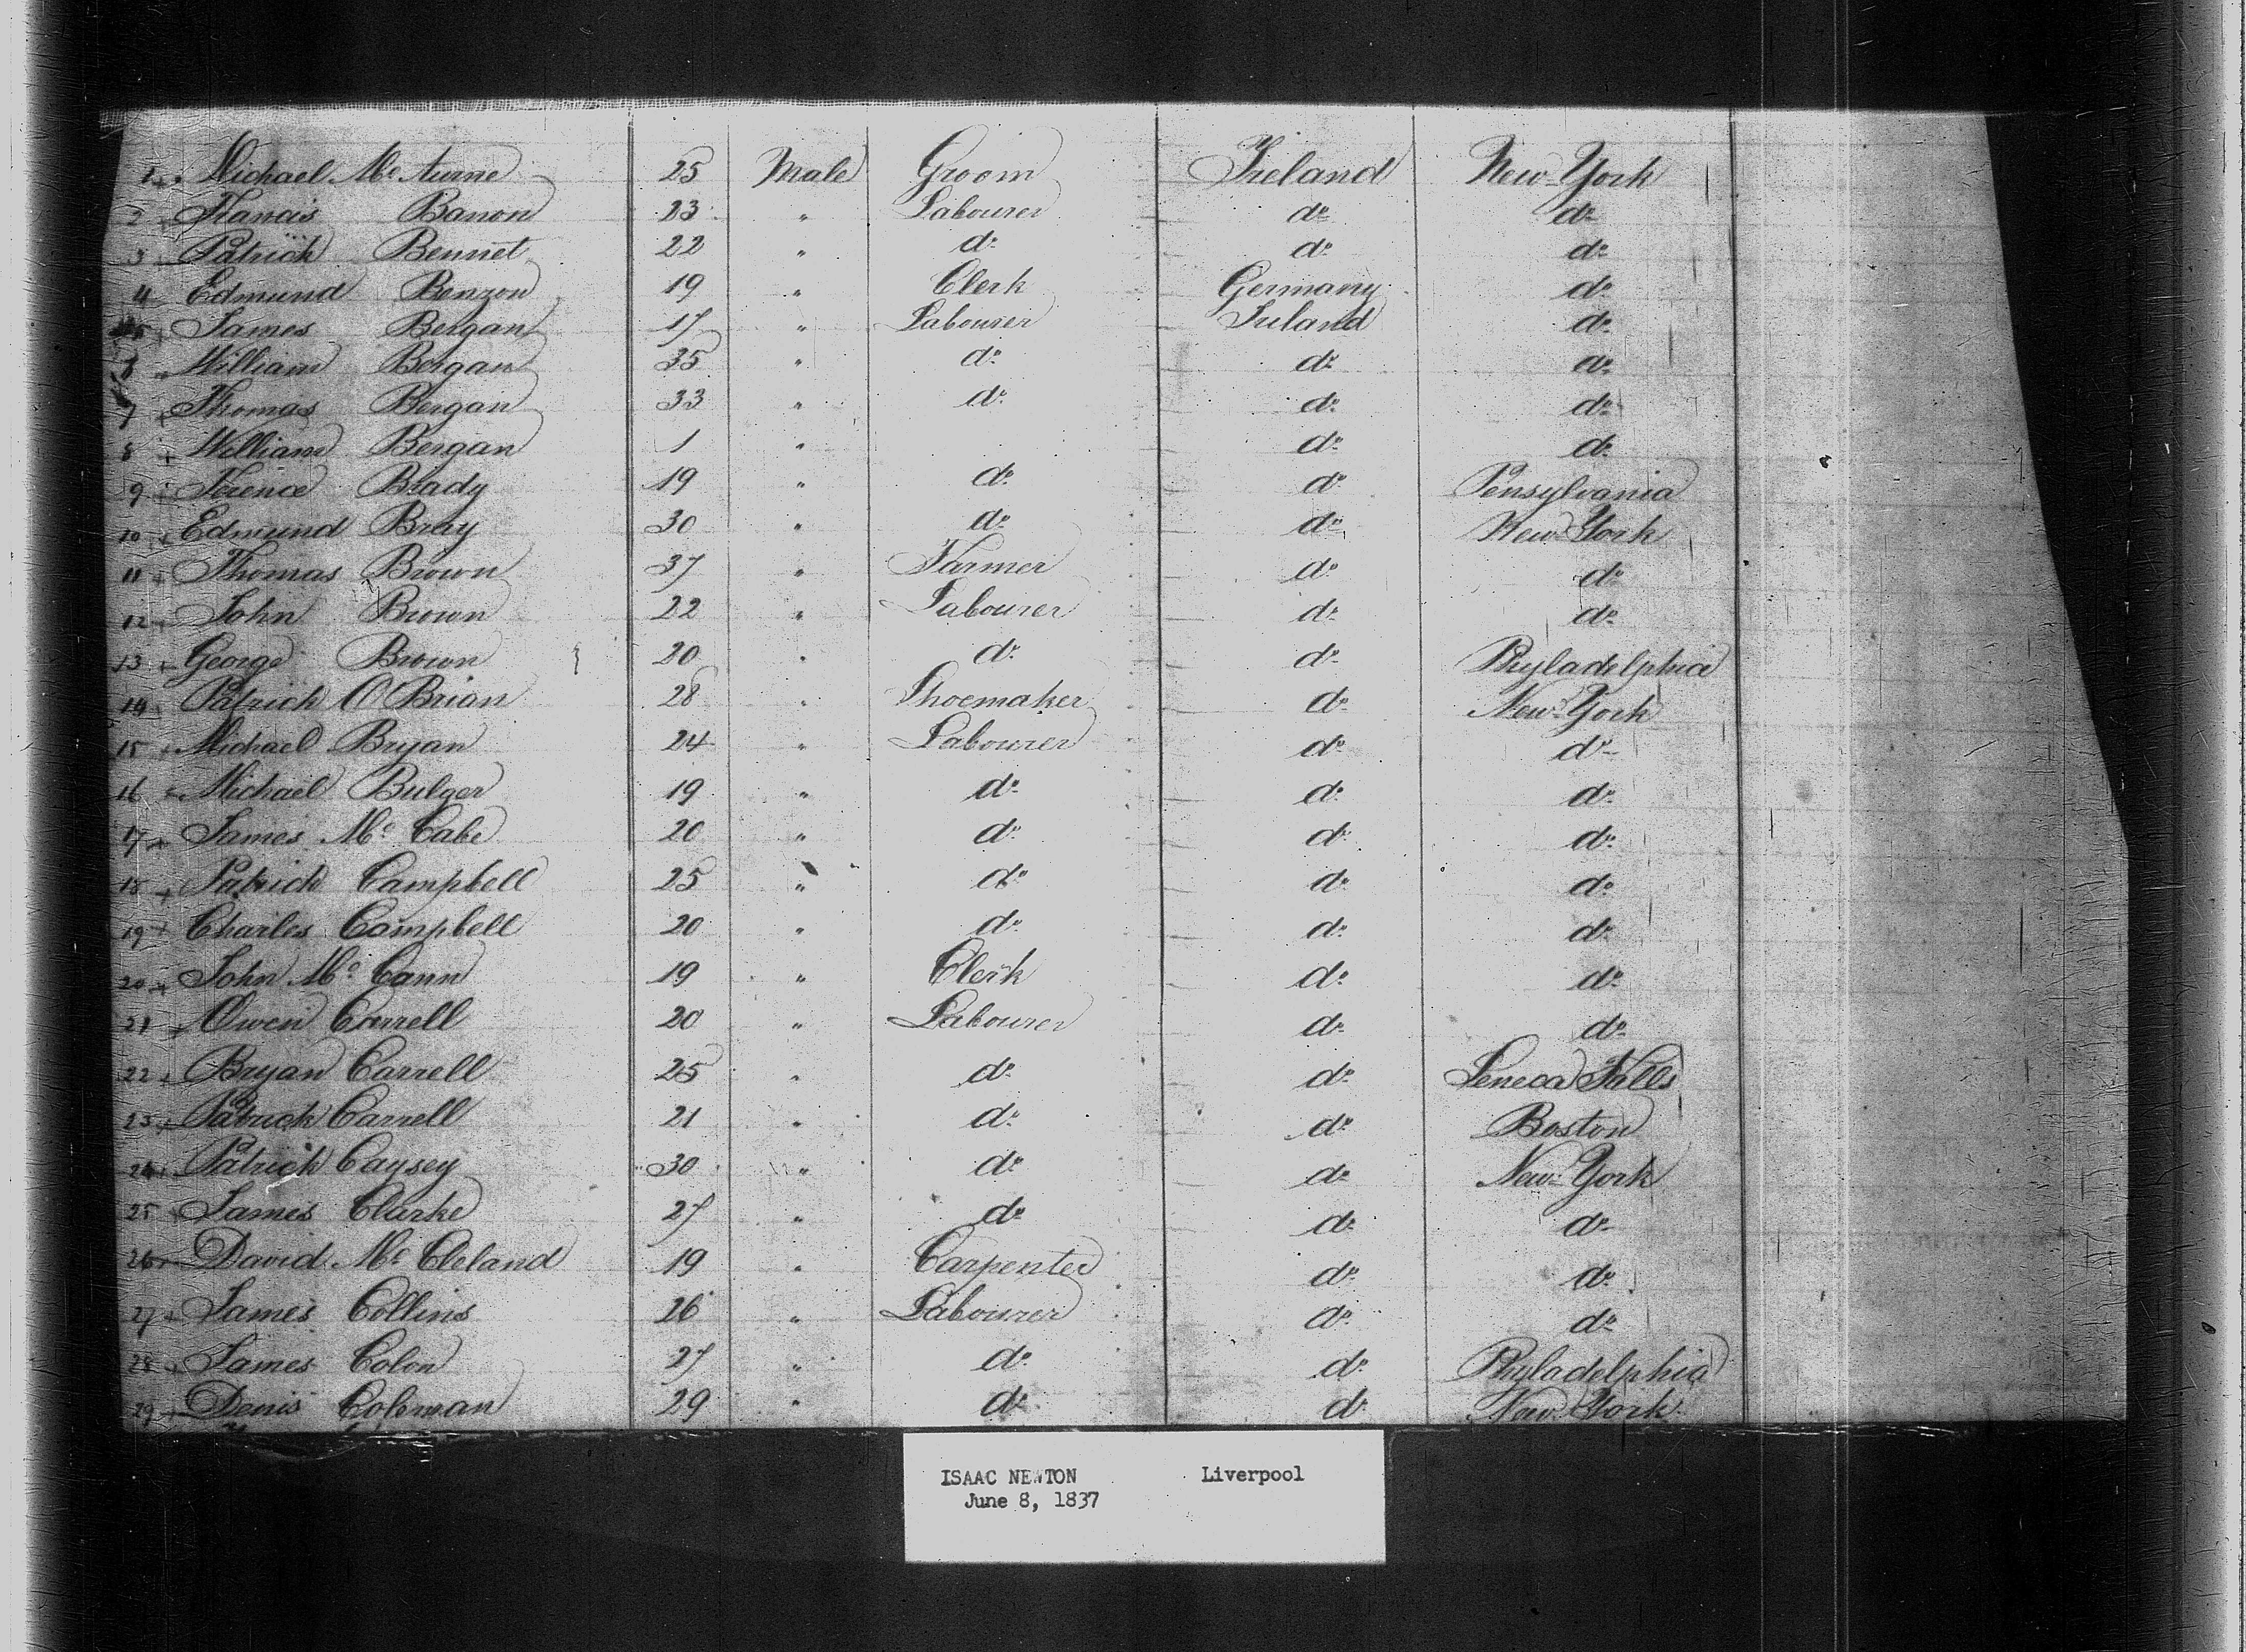 1 Michael Mc Auvine 25 Male Groom Ireland New-York
2 Francis Banon 23 " Labourer do do
3 Patrick Bennet 22 " do do do
4 Edmund Benzon 19 " Clerk Germany do
5 James Bergan 17 " Labourer Ireland do
6 William Bergan 35 " do do do
7 Thomas Bergan 33 " do do do
8 William Bergan 1 " do do
9 Terence Brady 19 " do do Pensylvania
10 Edmund Bray 30 " do do New-York
11 Thomas Brown 37 " Farmer do do
12 John Brown 22 " Labourer do do
13 George Brown 20 " do do Phyladelphia
14 Patrick O'Brian 28 " Shoemaker do New-York
15 Michael Bryan 24 " Labourer do do
16 Michael Bulger 19 " do do do
17 James Mc Cabe 20 " do do do
18 Patrick Campbell 25 " do do do
19 Charles Campbell 20 " do do do
20 John Mc Cann 19 " Clerk do do
21 Owen Carrell 20 " Labourer do do
22 Bryan Carrell 25 " do do Seneca Falls
23 Patrick Carrell 21 " do do Boston
24 Patrick Caysey 30 " do do New-York
25 James Clarke 27 " do do do
26 David Mc Cleland 19 " Carpenter do do
27 James Collins 26 " Labourer do do
28 James Colon 27 " do do Phyladelphia
29 Denis Coleman 29 " do do New-York
ISAAC NEWTON Liverpool
June 8, 1837